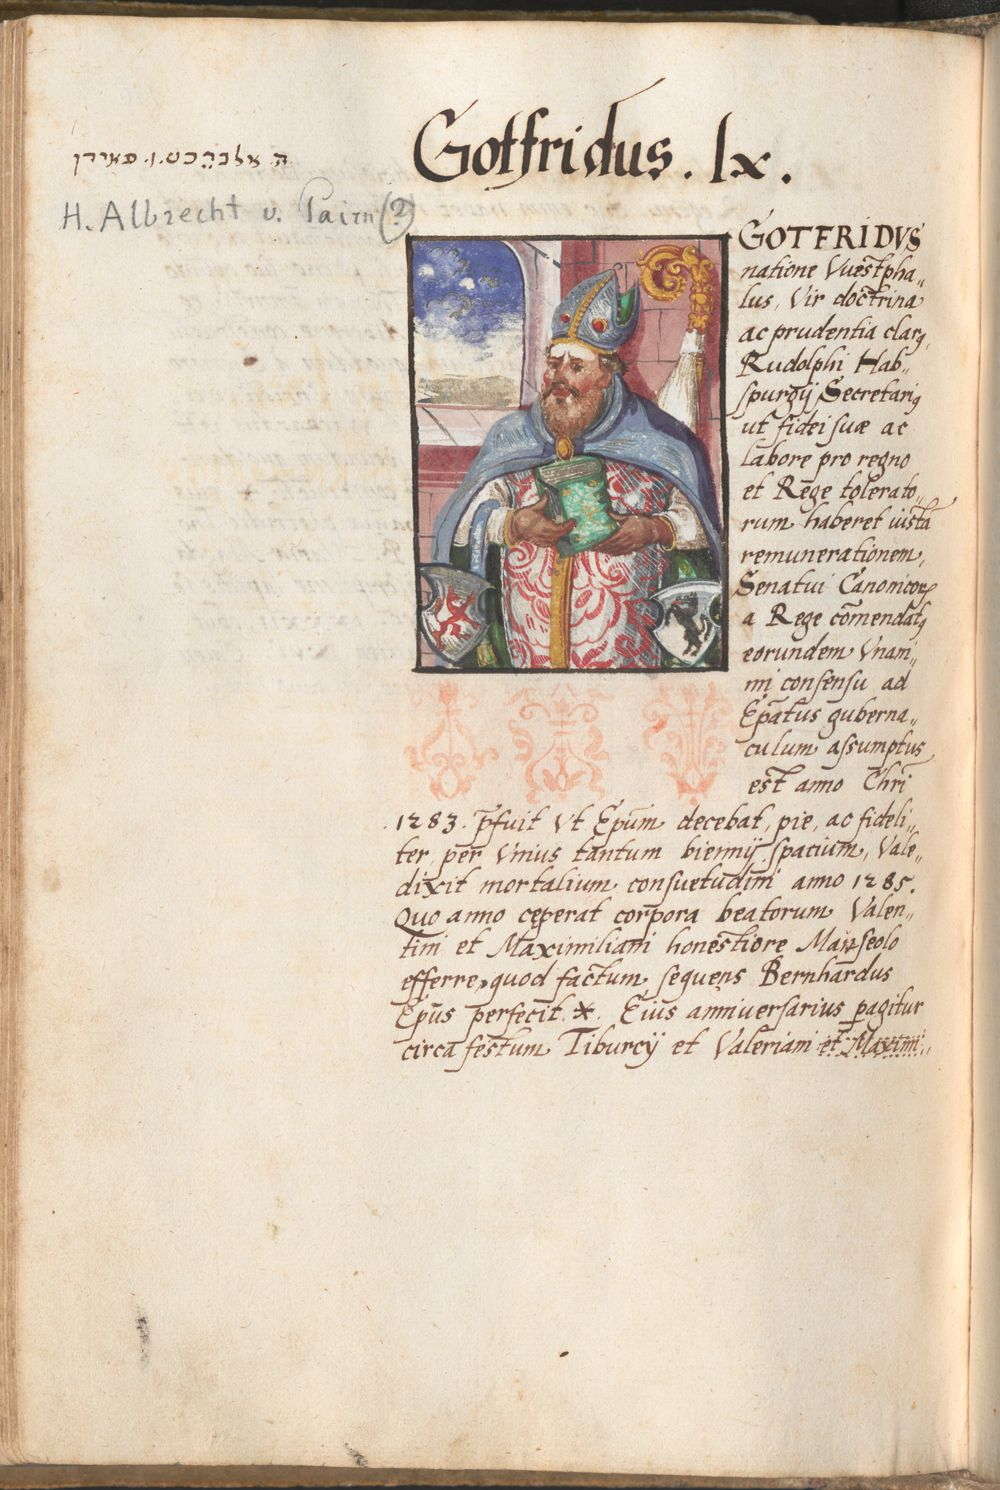 Gotfridus . lx .
ה אלברכט . ו . פאירן
H. Albrecht v. Pairn (?)
GOTFRIDVS
natione Vuestpha„
lus, Vir doctrina
ac prudentia clarꝯ,
Rudolphi Hab„
spurgij Secretariꝯ
ut fidei suæ ac
labore pro regno
et Rege tolerato„
rum haberet iusta
remunerationem,
Senatui Canonicoꝝ
a Rege com̄endatꝯ
eorundem Vnani„
mi consensu ad
Ep̄atus guberna„
culum assumptus
est anno Chri
.1283. p̄fuit Vt Ep̄um decebat, pie, ac fideli„
ter, per Vnius tantum biennij spacium, Vale„
dixit mortalium consuetudini anno 1285.
Quo anno ceperat corpora beatorum Valen„
tini et Maximiliani honestiore Mauseolo
efferre, quod factum, sequens Bernhardus
Ep̄us perfecit. *. Eius anniversarius ꝑagitur
circa festum Tiburcij et Valeriani et Maximi„